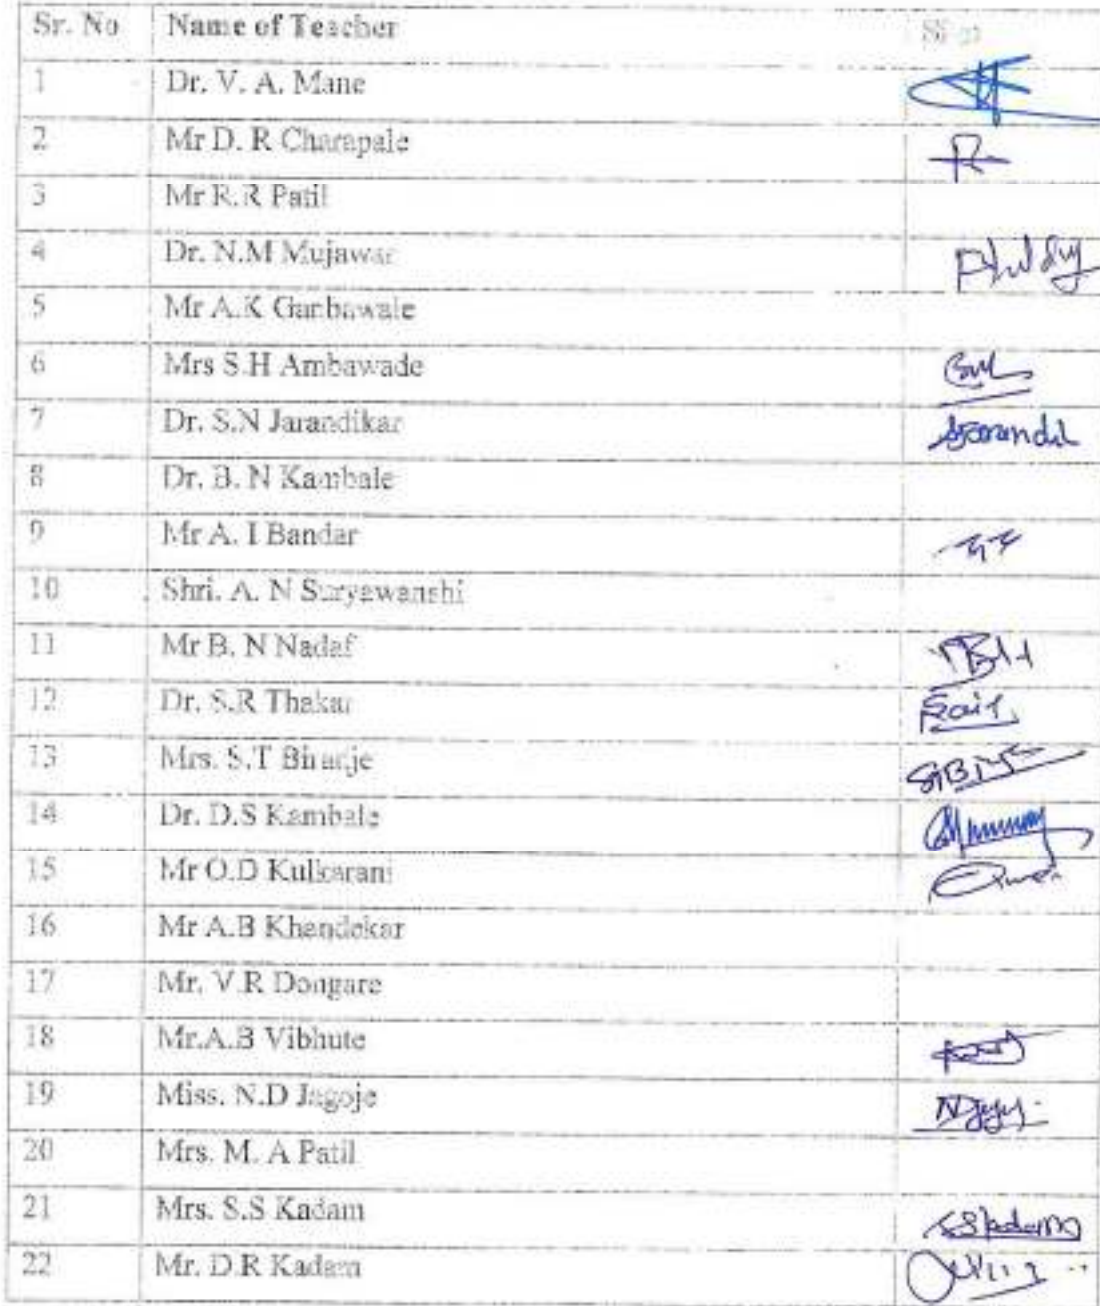 Sr. No Name of Teacher Sign
1 Dr. V. A. Mane
2 Mr D. R Charapale
3 Mr R.R Patil
4 Dr. N.M Mujawar
5 Mr A.K Ganbawale
6 Mrs S.H Ambawade
7 Dr. S.N Jarandikar
8 Dr. B. N Kambale
9 Mr A. I Bandar
10 Shri. A. N Suryawanshi
11 Mr B. N Nadaf
12 Dr. S.R Thakar
13 Mrs. S.T Biranje
14 Dr. D.S Kambale
15 Mr O.D Kulkarani
16 Mr A.B Khandekar
17 Mr. V.R Dongare
18 Mr.A.B Vibhute
19 Miss. N.D Jagoje
20 Mrs. M. A Patil
21 Mrs. S.S Kadam SSkadam
22 Mr. D.R Kadam